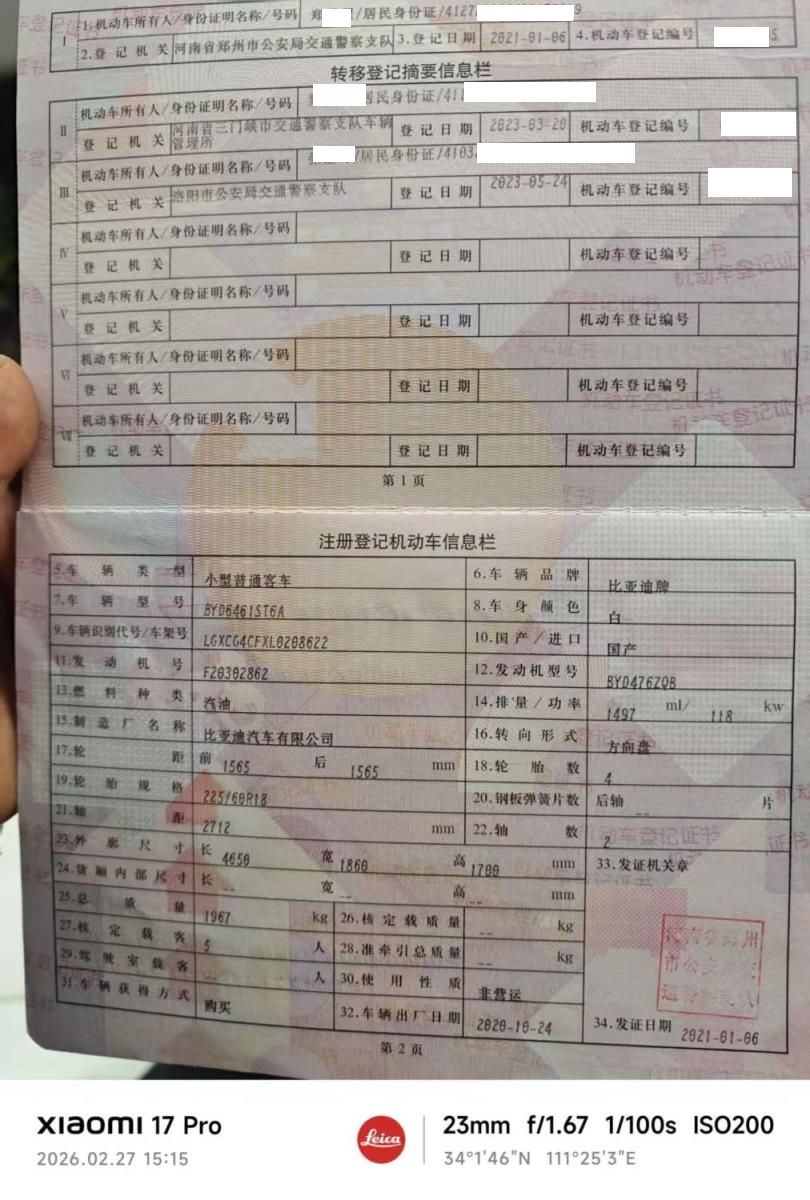 I 1.机动车所有人/身份证明名称/号码 郑 /居民身份证/4127 9
2.登记机关 河南省郑州市公安局交通警察支队 3.登记日期 2021-01-06 4.机动车登记编号 5
转移登记摘要信息栏
II 机动车所有人/身份证明名称/号码 居民身份证/41
登记机关 河南省三门峡市交通警察支队车辆管理所 登记日期 2023-03-20 机动车登记编号
III 机动车所有人/身份证明名称/号码 /居民身份证/4103
登记机关 洛阳市公安局交通警察支队 登记日期 2023-05-24 机动车登记编号
IV 机动车所有人/身份证明名称/号码
登记机关 登记日期 机动车登记编号
V 机动车所有人/身份证明名称/号码
登记机关 登记日期 机动车登记编号
VI 机动车所有人/身份证明名称/号码
登记机关 登记日期 机动车登记编号
VII 机动车所有人/身份证明名称/号码
登记机关 登记日期 机动车登记编号
第1页
注册登记机动车信息栏
5.车辆类型 小型普通客车 6.车辆品牌 比亚迪牌
7.车辆型号 BYD6461ST6A 8.车身颜色 白
9.车辆识别代号/车架号 LGXCG4CFXL0208622 10.国产/进口 国产
11.发动机号 F20302862 12.发动机型号 BYD476ZQB
13.燃料种类 汽油 14.排量/功率 1497 ml/ 118 kw
15.制造厂名称 比亚迪汽车有限公司 16.转向形式 方向盘
17.轮距 前 1565 后 1565 mm 18.轮胎数 4
19.轮胎规格 225/60R18 20.钢板弹簧片数 后轴 -- 片
21.轴距 2712 mm 22.轴数 2
23.外廓尺寸 长 4650 宽 1860 高 1700 mm 33.发证机关章
24.货厢内部尺寸 长 -- 宽 -- 高 -- mm
25.总质量 1967 kg 26.核定载质量 -- kg
27.核定载客 5 人 28.准牵引总质量 -- kg
29.驾驶室载客 -- 人 30.使用性质 非营运
31.车辆获得方式 购买 32.车辆出厂日期 2020-10-24 34.发证日期 2021-01-06
河南省郑州
市公安局交
通警察支队
第2页
XIAOMI 17 Pro Leica 23mm f/1.67 1/100s ISO200
2026.02.27 15:15 34°1'46"N 111°25'3"E